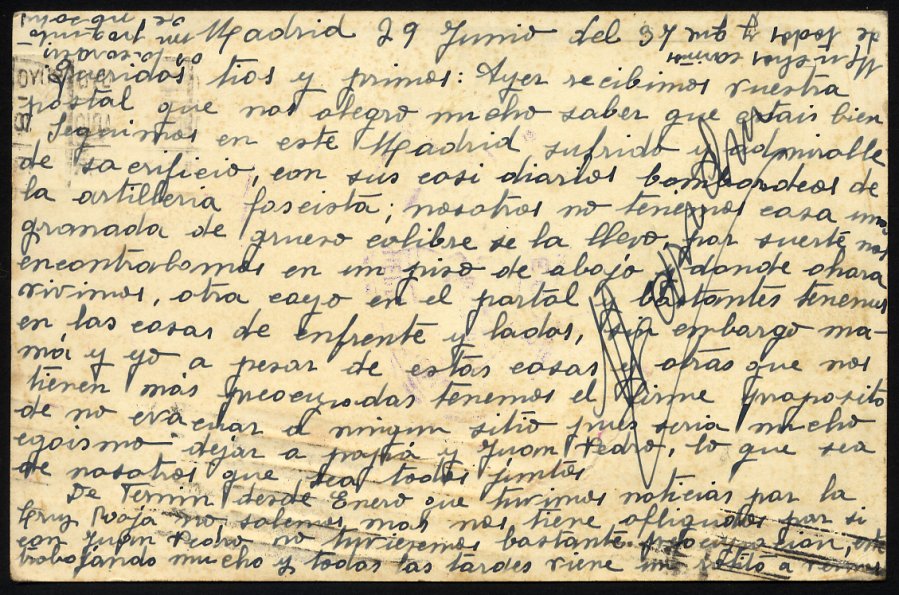 Madrid 29 Junio del 37
Queridos tios y primos: Ayer recibimos vuestra
postal que nos alegro mucho saber que estais bien
Seguimos en este Madrid sufrido y admirable
de sacrificio, con sus casi diarios bombardeos de
la artilleria fascista; nosotros no tenemos casa una
granada de grueso calibre se la llevo, por suerte nos
encontrabamos en un piso de abajo donde ahora
vivimos, otra cayo en el portal y bastantes tenemos
en las casas de enfrente y lados, sin embargo ma-
má y yo a pesar de estas cosas y otras que nos
tienen más preocupadas tenemos el firme proposito
de no evacuar a ningun sitio pues seria mucho
egoismo dejar a papá y Juan Pedro, lo que sea
de nosotros que sea todos juntos
De Fermin desde Enero que tuvimos noticias por la
Cruz Roja no sabemos mas nos tiene afligidos por si
con Juan Pedro no tuvieremos bastante preocupacion, esta
trabajando mucho y todas las tardes viene un ratito a vernos
de todos y que